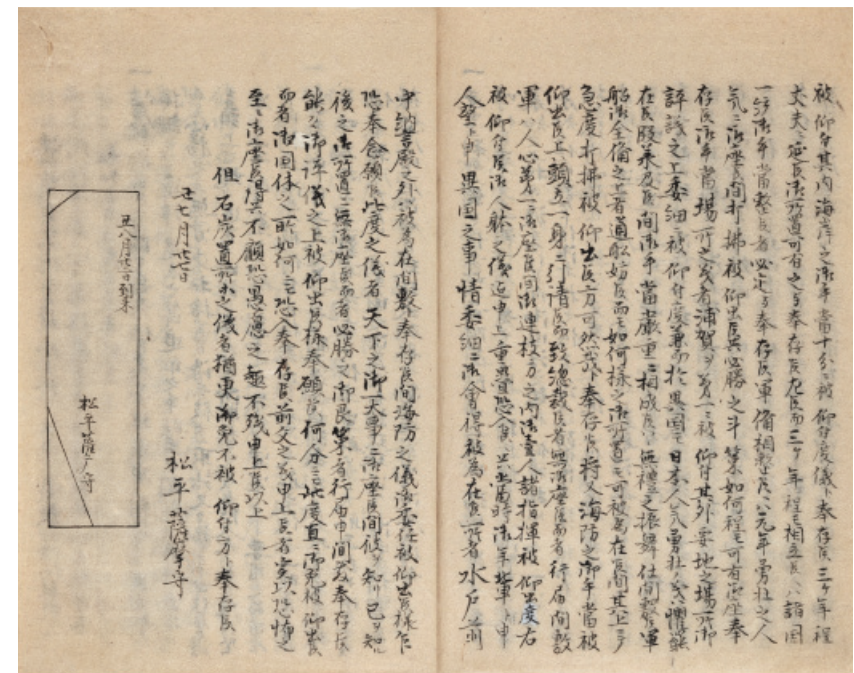 被 仰付其内海岸之御手当十分ニ被 仰付度儀ト奉存候三ヶ年程
丈夫ニ延候御所置可有之与奉存候左候而三ヶ年程も相立候ハヽ諸国
一統御手当整候者必定与奉存候軍備相整候ハヽ元年勇壮之人
気ニ御座候間打拂被 仰出候共必勝之斗策如何程も可有御座奉
存候御手当場所之義者浦賀ヲ第一ニ被 仰付其外要地之場所御
評議之上委細ニ被 仰付度兼而於異国も日本人気勇壮之義ハ懼罷
在候及候間御手当厳重ニ相成候ハヽ無禮之振舞仕間敷軍
船御全備之上者通船妨候而も如何様之御所置も可被為在候間其上ニ而
急度打拂被 仰出候方可然哉ト奉存候将又海防之御手当被
仰出候上頭立一身ニ引請候而致總裁候者無御座候而者行届間敷
軍ハ人心第一ニ御座候間御連枝方之内御壹人諸指揮被 仰出度右
被 仰付候御人躰之儀迄申上重畳恐入候得共當時御年輩ト申
人望ト申異国之事情委細ニ御會得被為在候所者水戸前
中納言殿之外ハ被為在間敷ト奉存候間海防之儀御委任被 仰出候様乍
恐奉念願候此度之儀者 天下之御一大事ニ御座候間彼ヲ知リ已ヲ知
後之御所置ニ無御座候而者必勝之御良策者行届申間敷奉存候
能々御評儀之上被 仰出候様奉願候何分ニも此度直ニ御免被 仰出候
而者御国体之所如何ニも恐入奉存候前文之義申上候者実以恐怖之
至ニ御座候得共不顧恐愚慮之趣不残申上候以上
但石炭置所等之儀者猶更御免不被 仰付方ト奉存候
丑七月廿日
松平薩摩守
丑八月廿一日到来
松平薩摩守